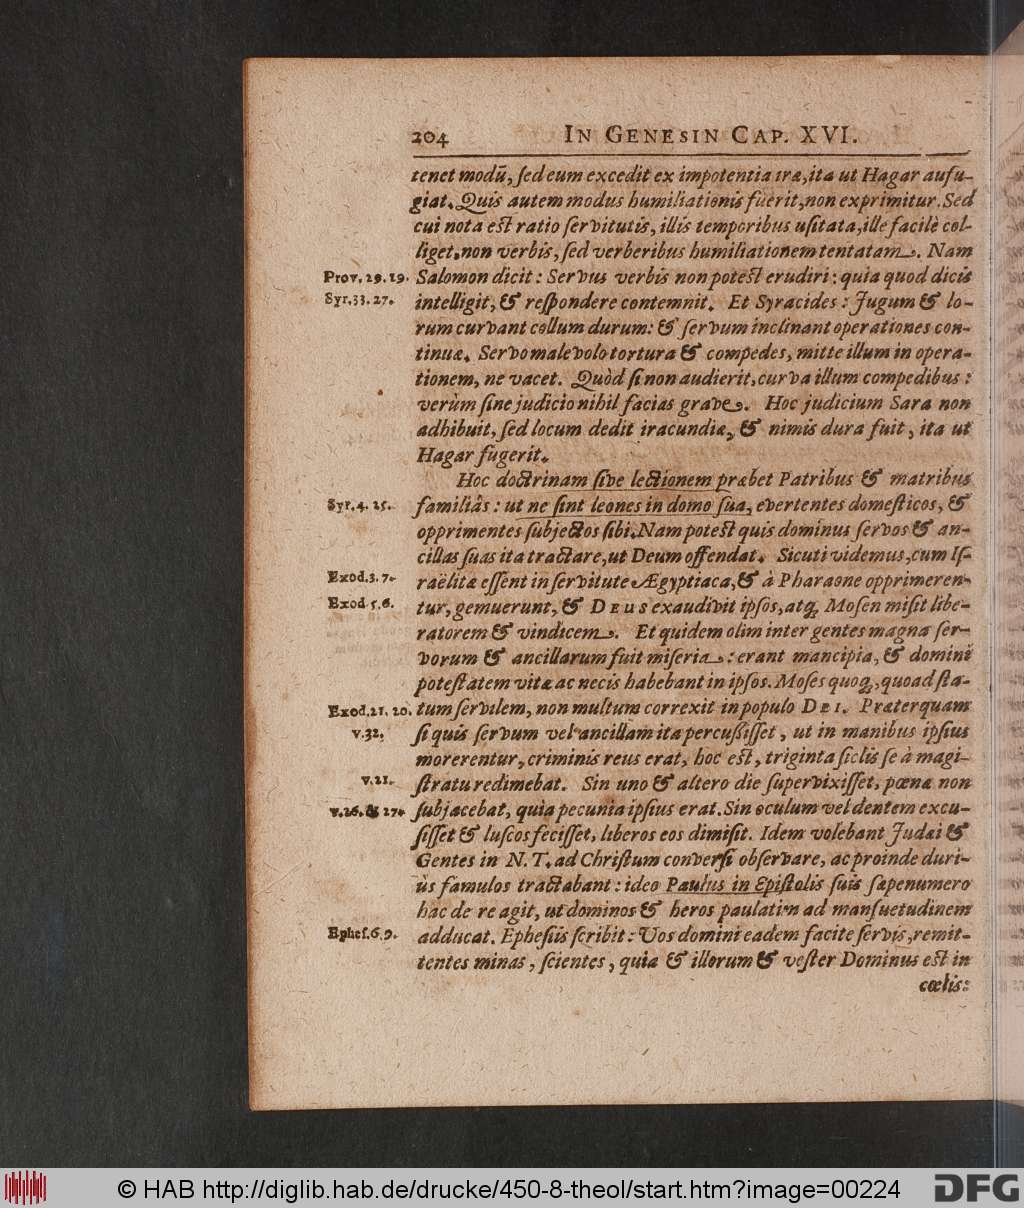 204 IN GENESIN CAP. XVI.
tenet modū, ſed eum excedit ex impotentia iræ, ita ut Hagar aufu-
giat. Quis autem modus humiliationis fuerit, non exprimitur. Sed
cui nota est ratio ſervitutis, illis temporibus uſitata, ille facilè col-
liget, non verbis, ſed verberibus humiliationem tentatam. Nam
Prov. 29. 19. Salomon dicit: Servus verbis non potest erudiri: quia quod dicis
Syr. 33. 27. intelligit, & reſpondere contemnit. Et Syracides: Jugum & lo-
rum curvant collum durum: & ſervum inclinant operationes con-
tinuæ. Servo malevolo tortura & compedes, mitte illum in opera-
tionem, ne vacet. Quòd ſi non audierit, curva illum compedibus:
verùm ſine judicio nihil facias grave. Hoc judicium Sara non
adhibuit, ſed locum dedit iracundiæ, & nimis dura fuit, ita ut
Hagar fugerit.
Hoc doctrinam ſive lectionem præbet Patribus & matribus
Syr. 4. 25. familiâs: ut ne ſint leones in domo ſua, evertentes domeſticos, &
opprimentes ſubjectos ſibi. Nam potest quis dominus ſervos & an-
cillas ſuas ita tractare, ut Deum offendat. Sicuti videmus, cum Iſ-
Exod. 3. 7. raëlitæ eſſent in ſervitute Ægyptiaca, & à Pharaone opprimeren-
Exod. 5. 6. tur, gemuerunt, & DEUS exaudivit ipſos, atq; Moſen miſit libe-
ratorem & vindicem. Et quidem olim inter gentes magna ſer-
vorum & ancillarum fuit miſeria: erant mancipia, & domini
poteſtatem vitæ ac necis habebant in ipſos. Moſes quoq;, quoad ſta-
Exod. 21. 20. tum ſervilem, non multum correxit in populo DEI. Præterquam
v. 32. ſi quis ſervum vel ancillam ita percuſſiſſet, ut in manibus ipſius
morerentur, criminis reus erat, hoc est, triginta ſiclis ſe à magi-
v. 21. ſtratu redimebat. Sin uno & altero die ſupervixiſſet, pœnæ non
v. 26. & 27. ſubjacebat, quia pecunia ipſius erat. Sin oculum vel dentem excu-
ſiſſet & luſcos feciſſet, liberos eos dimiſit. Idem volebant Judæi &
Gentes in N. T. ad Chriſtum converſi obſervare, ac proinde duri-
ùs famulos tractabant: ideo Paulus in Epiſtolis ſuis ſæpenumero
hac de re agit, ut dominos & heros paulatim ad manſuetudinem
Epheſ. 6. 9. adducat. Epheſiis ſcribit: Vos domini eadem facite ſervis, remit-
tentes minas, ſcientes, quia & illorum & veſter Dominus est in
cœlis:
© HAB http://diglib.hab.de/drucke/450-8-theol/start.htm?image=00224
DFG